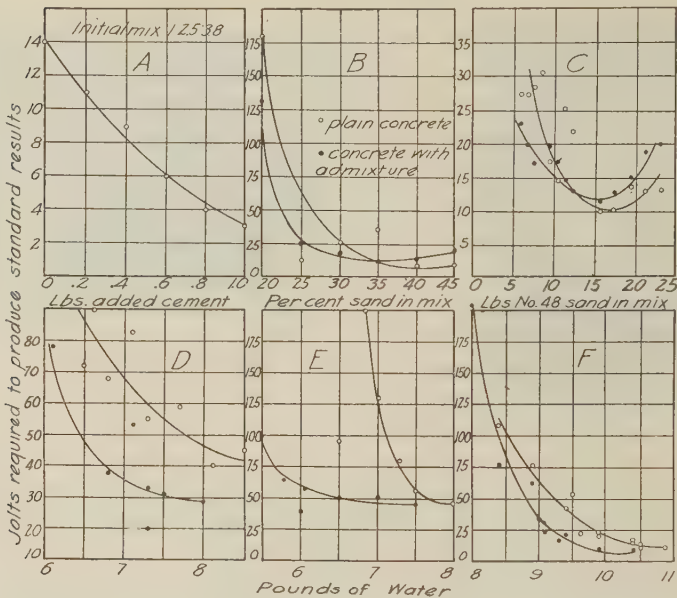 Jolts required to produce standard results
Initial mix 1 2.5 3.8
A
14
12
10
8
6
4
2
.0 .2 .4 .6 .8 1.0
Lbs. added cement
B
○ plain concrete
• concrete with
admixture
175
150
125
100
75
50
25
0
20 25 30 35 40 45
Per cent sand in mix
C
35
30
25
20
15
10
5
0
5 10 15 20 25
Lbs No. 48 sand in mix
D
80
70
60
50
40
30
20
10
6 7 8
E
175
150
125
100
75
50
25
0
6 7 8
F
175
150
125
100
75
50
25
0
8 9 10 11
Pounds of Water